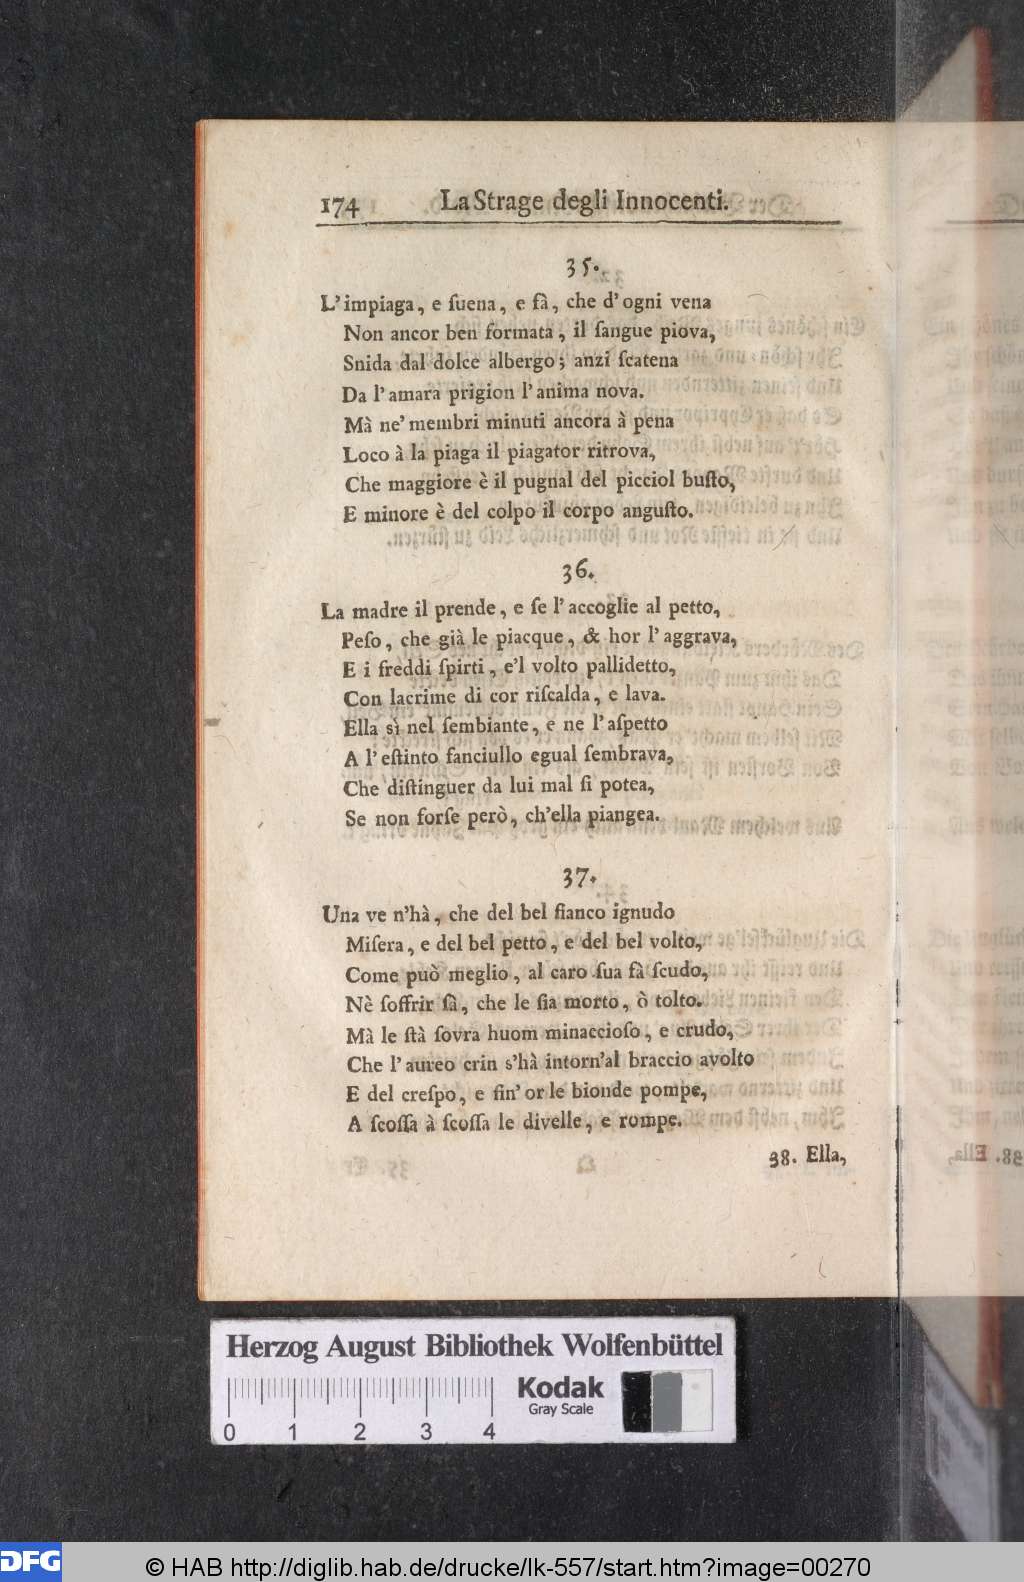 174 La Strage degli Innocenti.
35.
L' impiaga, e ſuena, e fà, che d' ogni vena
Non ancor ben formata, il ſangue piova,
Snida dal dolce albergo; anzi ſcatena
Da l' amara prigion l' anima nova.
Mà ne' membri minuti ancora à pena
Loco à la piaga il piagator ritrova,
Che maggiore è il pugnal del picciol buſto,
E minore è del colpo il corpo anguſto.
36.
La madre il prende, e ſe l' accoglie al petto,
Peſo, che già le piacque, & hor l' aggrava,
E i freddi ſpirti, e'l volto pallidetto,
Con lacrime di cor riſcalda, e lava.
Ella sì nel ſembiante, e ne l' aſpetto
A l' eſtinto fanciullo egual ſembrava,
Che diſtinguer da lui mal ſi potea,
Se non forſe però, ch'ella piangea.
37.
Una ve n'hà, che del bel fianco ignudo
Miſera, e del bel petto, e del bel volto,
Come può meglio, al caro ſua fà ſcudo,
Nè ſoffrir ſà, che le ſia morto, ò tolto.
Mà le ſtà ſovra huom minaccioſo, e crudo,
Che l' aureo crin s'hà intorn'al braccio avolto
E del creſpo, e fin' or le bionde pompe,
A ſcoſſa à ſcoſſa le divelle, e rompe.
38. Ella,
Herzog August Bibliothek Wolfenbüttel
Kodak
Gray Scale
0 1 2 3 4
DFG © HAB http://diglib.hab.de/drucke/lk-557/start.htm?image=00270